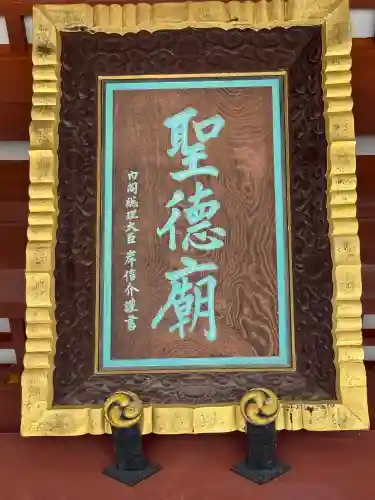 聖徳廟
内閣総理大臣 岸信介 謹書